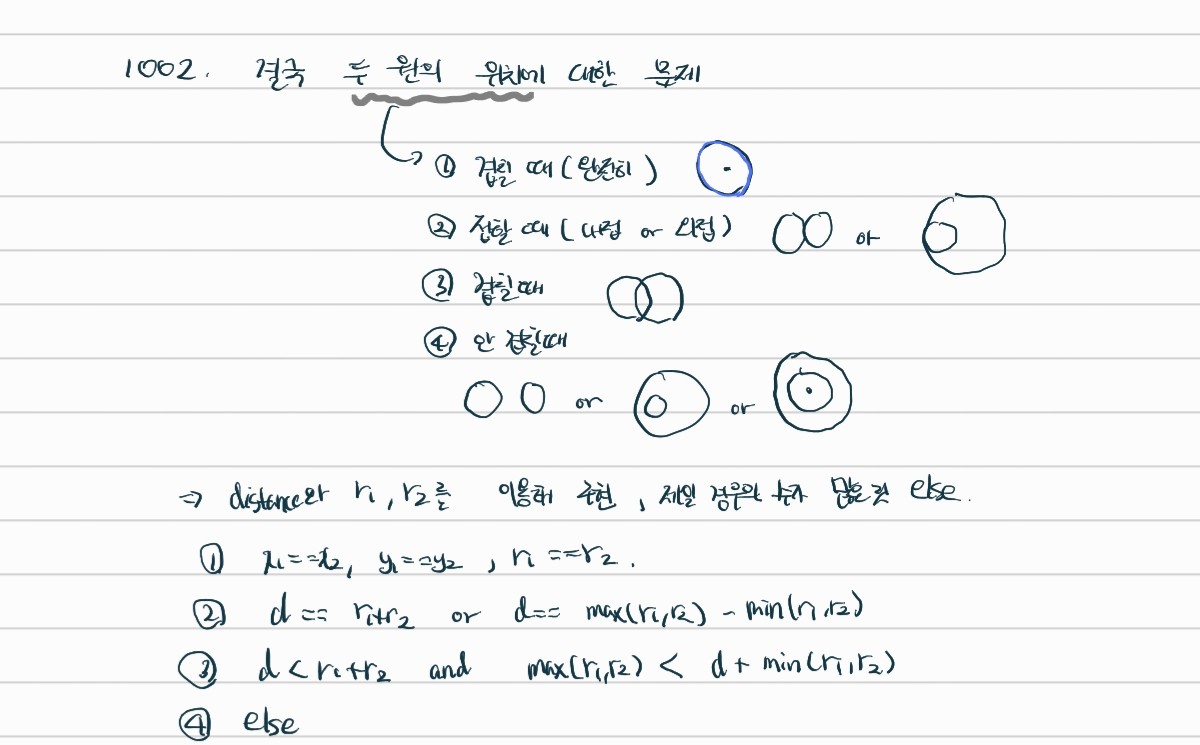 1002. 결국 두 원의 위치에 대한 문제
① 겹칠 때 (완전히)
② 접할 때 (내접 or 외접) or
③ 겹칠때
④ 안 겹칠때
or or
⇒ distance와 r₁, r₂를 이용해 구현, 제일 경우의 수가 많은 것 else.
① x₁==x₂, y₁==y₂, r₁==r₂.
② d == r₁+r₂ or d== max(r₁,r₂) - min(r₁,r₂)
③ d < r₁+r₂ and max(r₁,r₂) < d + min(r₁,r₂)
④ else